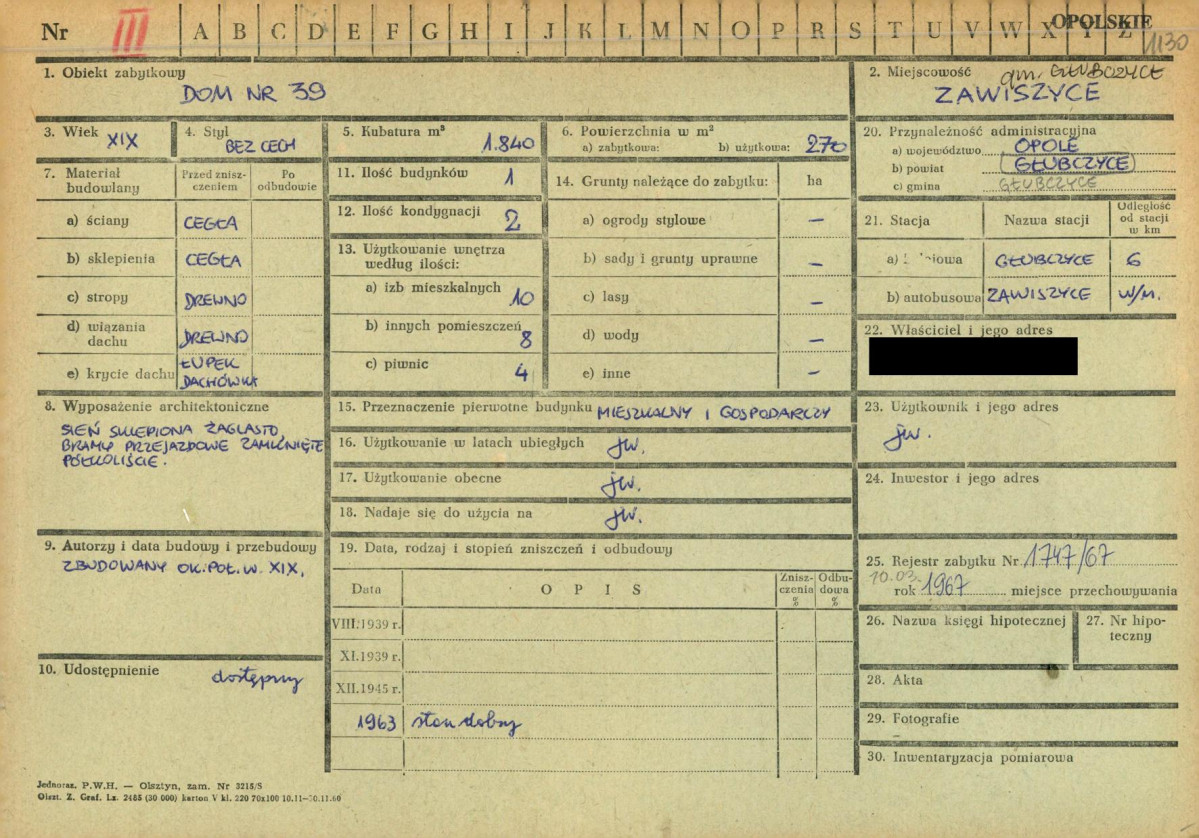 Nr III A B C D E F G H I J K L M N O P R S T U V W X Y Z OPOLSKIE
1130
1. Obiekt zabytkowy
DOM NR 39
2. Miejscowość gm. GŁUBCZYCE
ZAWISZYCE
3. Wiek XIX
4. Styl BEZ CECH
5. Kubatura m³ 1.840
6. Powierzchnia w m²
a) zabytkowa: b) użytkowa: 270
20. Przynależność administracyjna
a) województwo OPOLE
b) powiat GŁUBCZYCE
c) gmina GŁUBCZYCE
7. Materiał budowlany
Przed zniszczeniem
Po odbudowie
a) ściany CEGŁA
b) sklepienia CEGŁA
c) stropy DREWNO
d) wiązania dachu DREWNO
e) krycie dachu ŁUPEK DACHÓWKA
11. Ilość budynków 1
12. Ilość kondygnacji 2
13. Użytkowanie wnętrza
według ilości:
a) izb mieszkalnych 10
b) innych pomieszczeń 8
c) piwnic 4
14. Grunty należące do zabytku: ha
a) ogrody stylowe –
b) sady i grunty uprawne –
c) lasy –
d) wody –
e) inne –
21. Stacja
Nazwa stacji
Odległość
od stacji
w km
a) GŁUBCZYCE 6
b) autobusowa ZAWISZYCE W/M.
22. Właściciel i jego adres
8. Wyposażenie architektoniczne
SIEŃ SKLEPIONA ŻAGLASTO,
BRAMY PRZEJAZDOWE ZAMKNIĘTE
PÓŁKOLIŚCIE.
15. Przeznaczenie pierwotne budynku MIESZKALNY I GOSPODARCZY
16. Użytkowanie w latach ubiegłych jw.
17. Użytkowanie obecne jw.
18. Nadaje się do użycia na jw.
23. Użytkownik i jego adres
jw.
24. Inwestor i jego adres
9. Autorzy i data budowy i przebudowy
ZBUDOWANY OK. POŁ. W. XIX.
19. Data, rodzaj i stopień zniszczeń i odbudowy
Data
O P I S
Zniszczenia %
Odbudowa %
VIII.1939 r.
XI.1939 r.
XII.1945 r.
1963 stan dobry
25. Rejestr zabytku Nr 1747/67
10.03.
rok 1967 miejsce przechowywania
26. Nazwa księgi hipotecznej
27. Nr hipoteczny
10. Udostępnienie
dostępny
28. Akta
29. Fotografie
30. Inwentaryzacja pomiarowa
Jednoraz. P.W.H. — Olsztyn, zam. Nr 3215/S